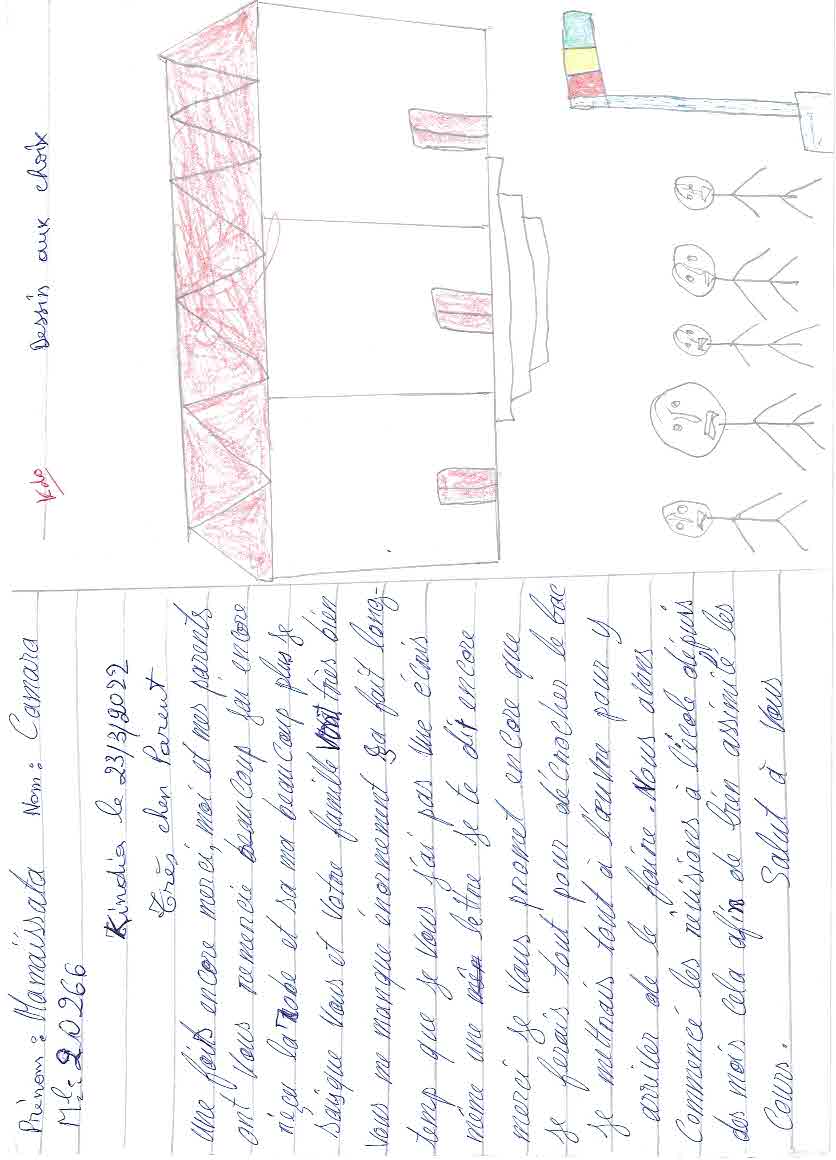 Prénom: Mamaïssata Nom: Camara
Mle: 20266
Kindia le 23/3/2022
Très cher Parent
Une fois encore merci, moi et mes parents
ont vous remercie beaucoup j'ai encore
réçu la robe et sa ma beaucoup plus je
sais que vous et votre famille très bien
vous me manque énormement ça fait long-
temp que je vous j'ai pas une écris
même une lettre je te dit encore
merci je vous promet encore que
je ferais tout pour décrocher le bac
je mettrais tout à l'œuvre pour y
arriver de le faire. Nous avons
Commencé les révisions à l'école dépuis
des mois cela afin de bien assimilé les
Cours. Salut à vous
Kdo Dessin aux choix